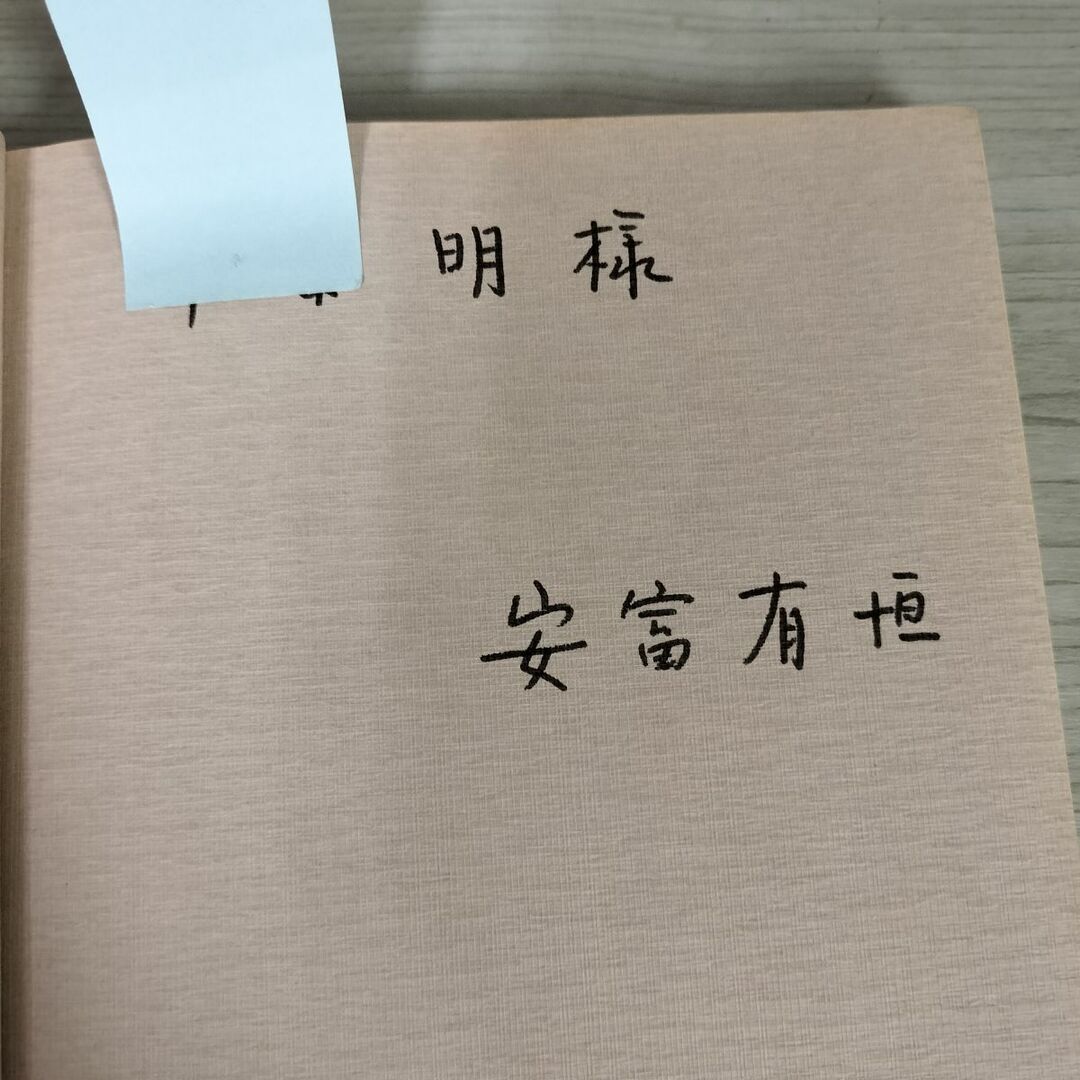 明 様
安 富 有 恒